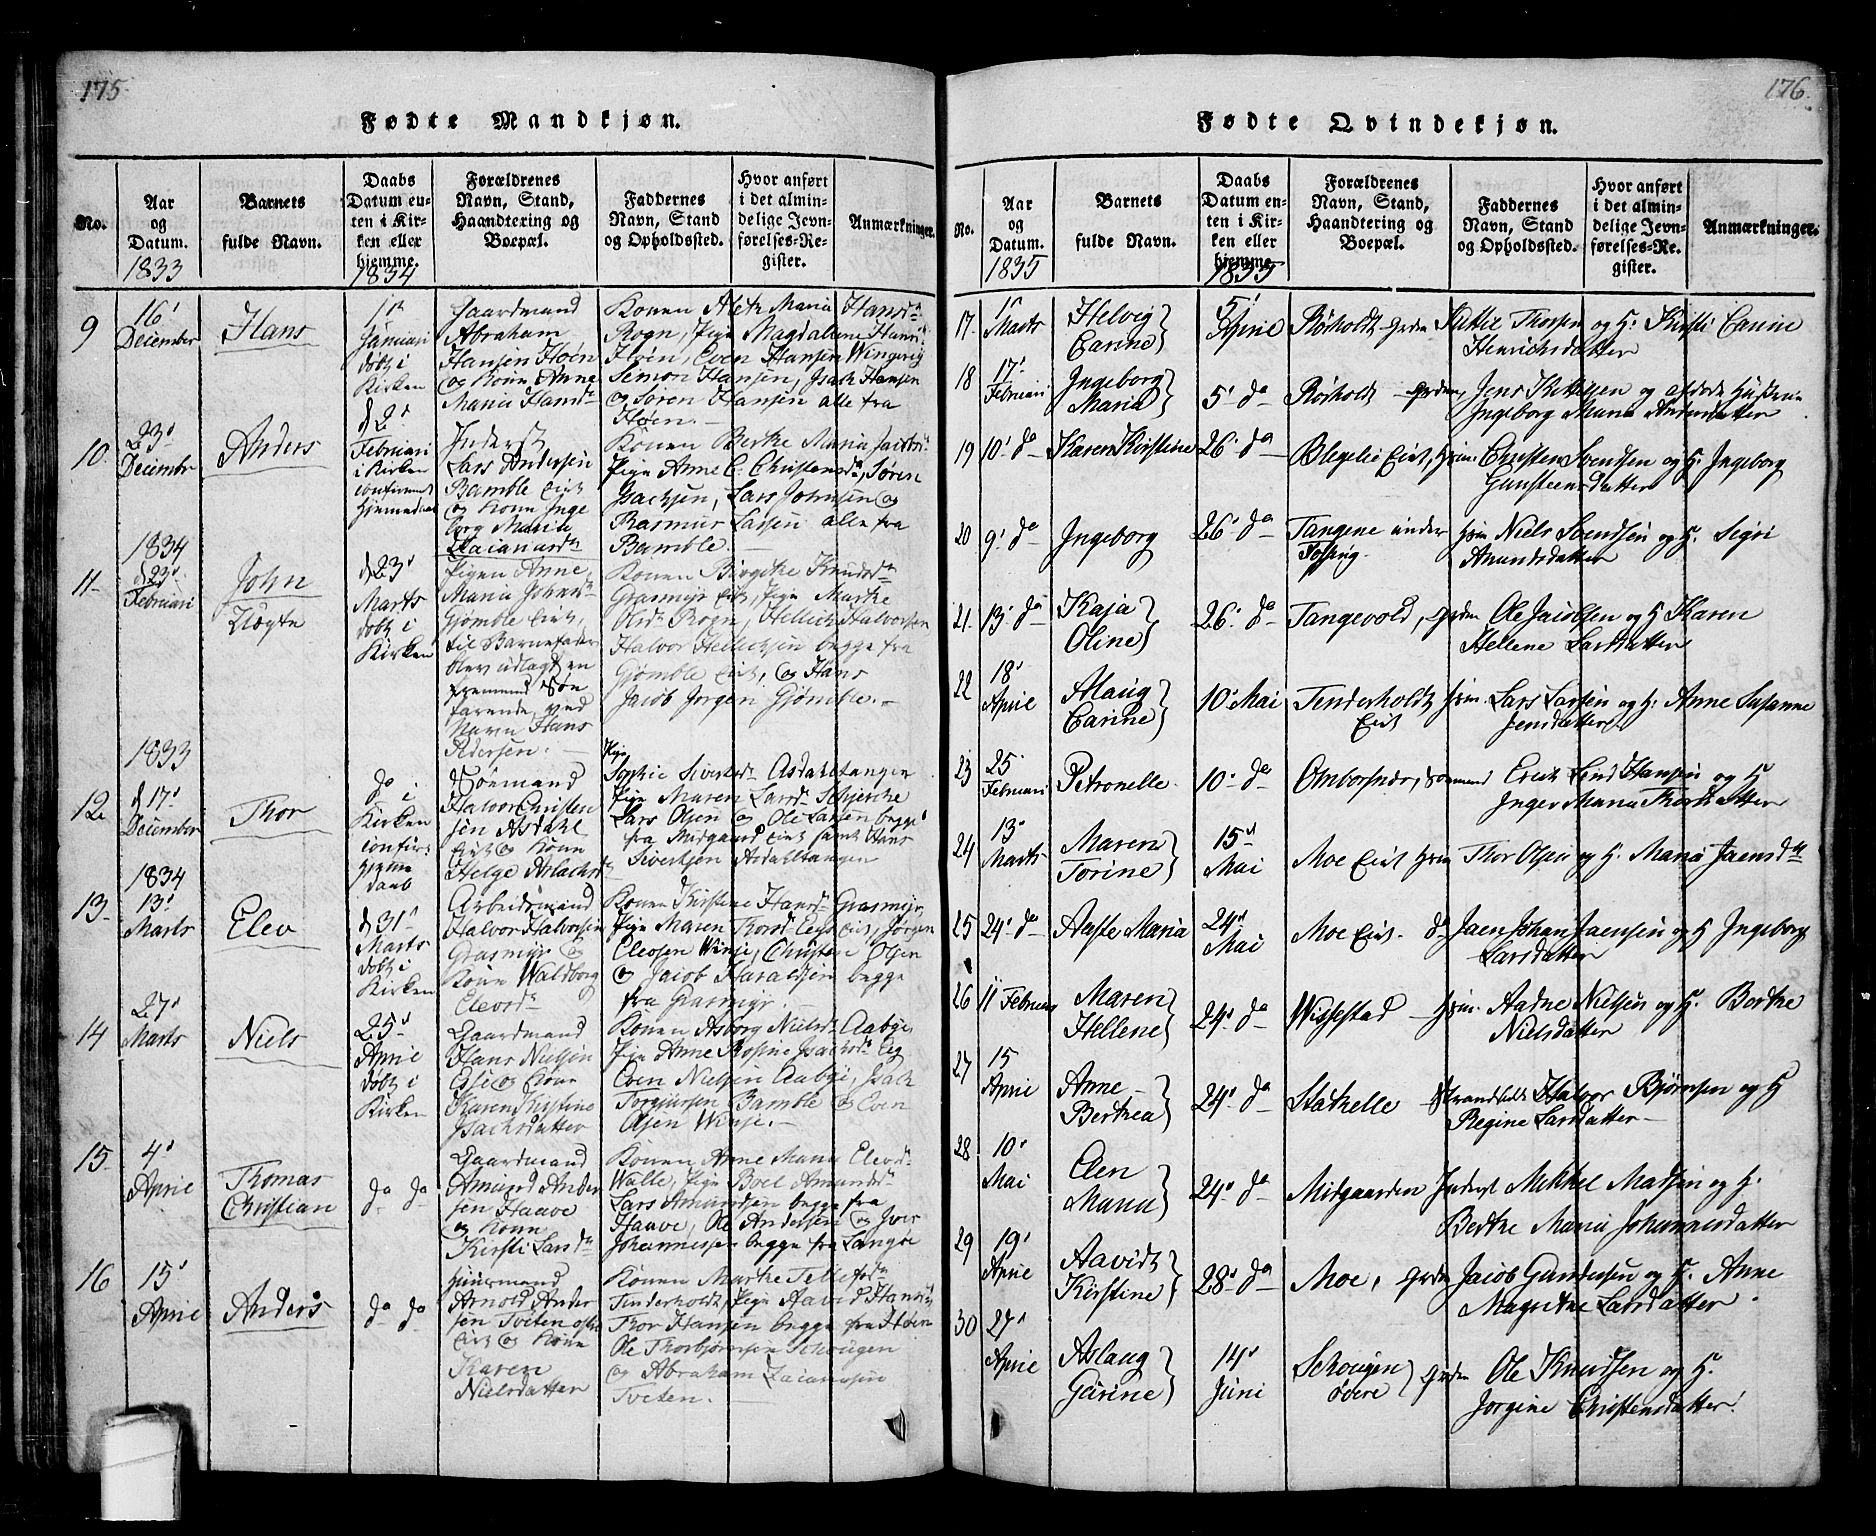 175
Fødte Mandkjøn.
No.
Aar og Datum.
1833
Barnets fulde Navn.
Daabs Datum enten i Kirken eller hjemme.
1834
Forældrenes Navn, Stand, Haandtering og Boepæl.
Faddernes Navn, Stand og Opholdssted.
Hvor anført i det almindelige Jevnførelses-Register.
Anmærkninger.
9
16'
December
Hans
Januari
døbt i
Kirken
Gaardmand
Abraham
Hansen Høen
og Kone Anne
Maria Hansd
Konen Maria Hansd
Rogn, Pige Magdalene Hansd
Høen, Even Hansen Wingereg
Simon Hansen, Isach Hansen
og Søren Hansen alle fra
Høen.
10
23'
Decembr
Anders
d 2'
Februari
i Kirken
confirmert
Hjemmedaab
Inderst
Lars Andersen
Bamble Eiet
og Kone Inge
borg Maria
Zaiariasdr
Konen Berthe Maria Jacobs
Pigen Anne C. Christensd, Søren
Isachsen, Lars Johnsen og
Rasmus Larsen alle fra
Bamble.
1834
11
d 23'
Februari
John
Uægte
d 23'
Marts
døbt i
Kirken
Pigen Anne
Maria Johnsd
Gjømble Eiet,
til Barnefader
blev udlagt en
fremmend Søe
farende, ved
Navn Hans
Pedersen.
Konen Birgithe Knudsd
Grasmyr Eiet, Pige Marthe
Olsdr Rogn, Hellich Halvorsen
Halvor Hellichsen begge fra
Gjømble Eiet, og Hans
Jacob Jørgen Gjømble.
1833
12
d 17'
December
Thor
do i
Kirken
confir:
hjemme
daab
Sømand
Halvor Christen
sen Asdahl
Eiet og Kone
Helge Aslachsd
Pige
Sophie Sivertsd Asdahltangen
Pige Maren Larsd Schjerche
Lars Olsen og Ole Larsen begge
fra Midgaard Eiet samt Hans
Sivertsen Asdahltangen
1834
13
13'
Marts
Elev
d 31'
Marts
døbt i
Kirken
Arbeidsmand
Halvor Halvorsen
Grasmyr og
Kone Waldborg
Elevsdr
Konen Kirstine Hansd Grasmyr
Pige Maren Thorsd Eiet, Jørgen
Elevsen Winje, Christen Olsen
og Jacob Haraldsen begge
fra Grasmyr.
14
27'
Marts
Niels
25'
April
døbt i
Kirken
Gaardmand
Hans Nielsen
og Kone
Karen Kirstine
Isachsdatter
Konen Asborg Nielsd Aabye
Pige Anne Rosine Isachsd
Even Nielsen Aabye, Isach
Torgjursen Bamble og Even
Olsen Winje.
15
4'
April
Thomas
Christian
do do
Gaardmand
Amund Ander
sen Haave
og Kone
Kirsti Larsdr
Konen Anne Maria Elevsd
Walle, Pige Boel Amundsd
Lars Amundsen begge fra
Haave, Ole Andersen og Iver
Johannessen begge fra Langøe
16
15'
April
Anders
do do
Huusmand
Arnold Ander
sen Tveten
Eiet og Kone
Karen
Nielsdatter
Konen Marthe Tellefsdr
Tinderholdt, Pige Aavid Hansd
Thor Hansen begge fra Høen
Ole Thorbjørnsen Schougen
og Abraham Zaiariasen
Tveten.
176
Fødte Qvindekjøn.
No.
Aar og Datum.
1835
Barnets fulde Navn.
Daabs Datum enten i Kirken eller hjemme.
1835
Forældrenes Navn, Stand, Haandtering og Boepæl.
Faddernes Navn, Stand og Opholdssted.
Hvor anført i det almindelige Jevnførelses-Register.
Anmærkninger.
17
1'
Marts
Helvig
Carine
5'
April
Rørholdt Grdm. Kittil Thorsen og H. Kirsti Carine
Henrichsdatter
18
17'
Februari
Ingeborg
Maria
5' do
Rørholdt Grdm. Jens Kittilsen og afdøde Hustrue
Ingeborg Maria Amundsdatter
19
10' do
Karen Kirstine
26' do
Blegelie Eiet, Hsm. Christen Svendsen og H. Ingeborg
Gunsteensdatter
20
9' do
Ingeborg
26' do
Tangene under
Hsm Niels Svendsen og H. Sigri
Amundsdatter
21
13' do
Kaja
Oline
26' do
Tangevold, Grdm Ole Jacobsen og H Karen
Hellene Larsdatter
22
18'
April
Alaug
Carine
10' Mai
Tinderholdt
Eiet
Hsm. Lars Larsen og H. Anne Susanne
Jensdatter
23
25
Februari
Petronelle
10' do
Omborsnæs, Sømand Erich Lind Hansen og H
Inger Maria Thorsdatter
24
13'
Marts
Maren
Torine
15'
Mai
Moe Eiet Hsm Thor Olsen og H. Maria Jaensdtr
25
24' do
Aaste Maria
24'
Mai
Moe Eiet. do Jaen Johan Jaensen og H Ingeborg
Larsdatter
26
11 Februari
Maren
Hellene
24' do
Wissestad Hsm. Aadne Nielsen og H. Berthe
Nielsdatter
27
15
April
Anne
Berthea
24' do
Stathelle Strandsidd Halvor Bjørnsen og H
Regine Larsdatter
28
10'
Mai
Elen
Maria
24' do
Midgaarden Inderst Mikkel Madsen og H.
Berthe Maria Johannesdatter
29
19'
April
Aavidt
Kirstine
28' do
Moe, Grdm Jacob Gundersen og H. Anne
Magrethe Larsdatter
30
27'
April
Aslaug
Gurine
14'
Juni
Schougen
øvre
Grdm Ole Knudsen og H.
Jørgine Christensdatter